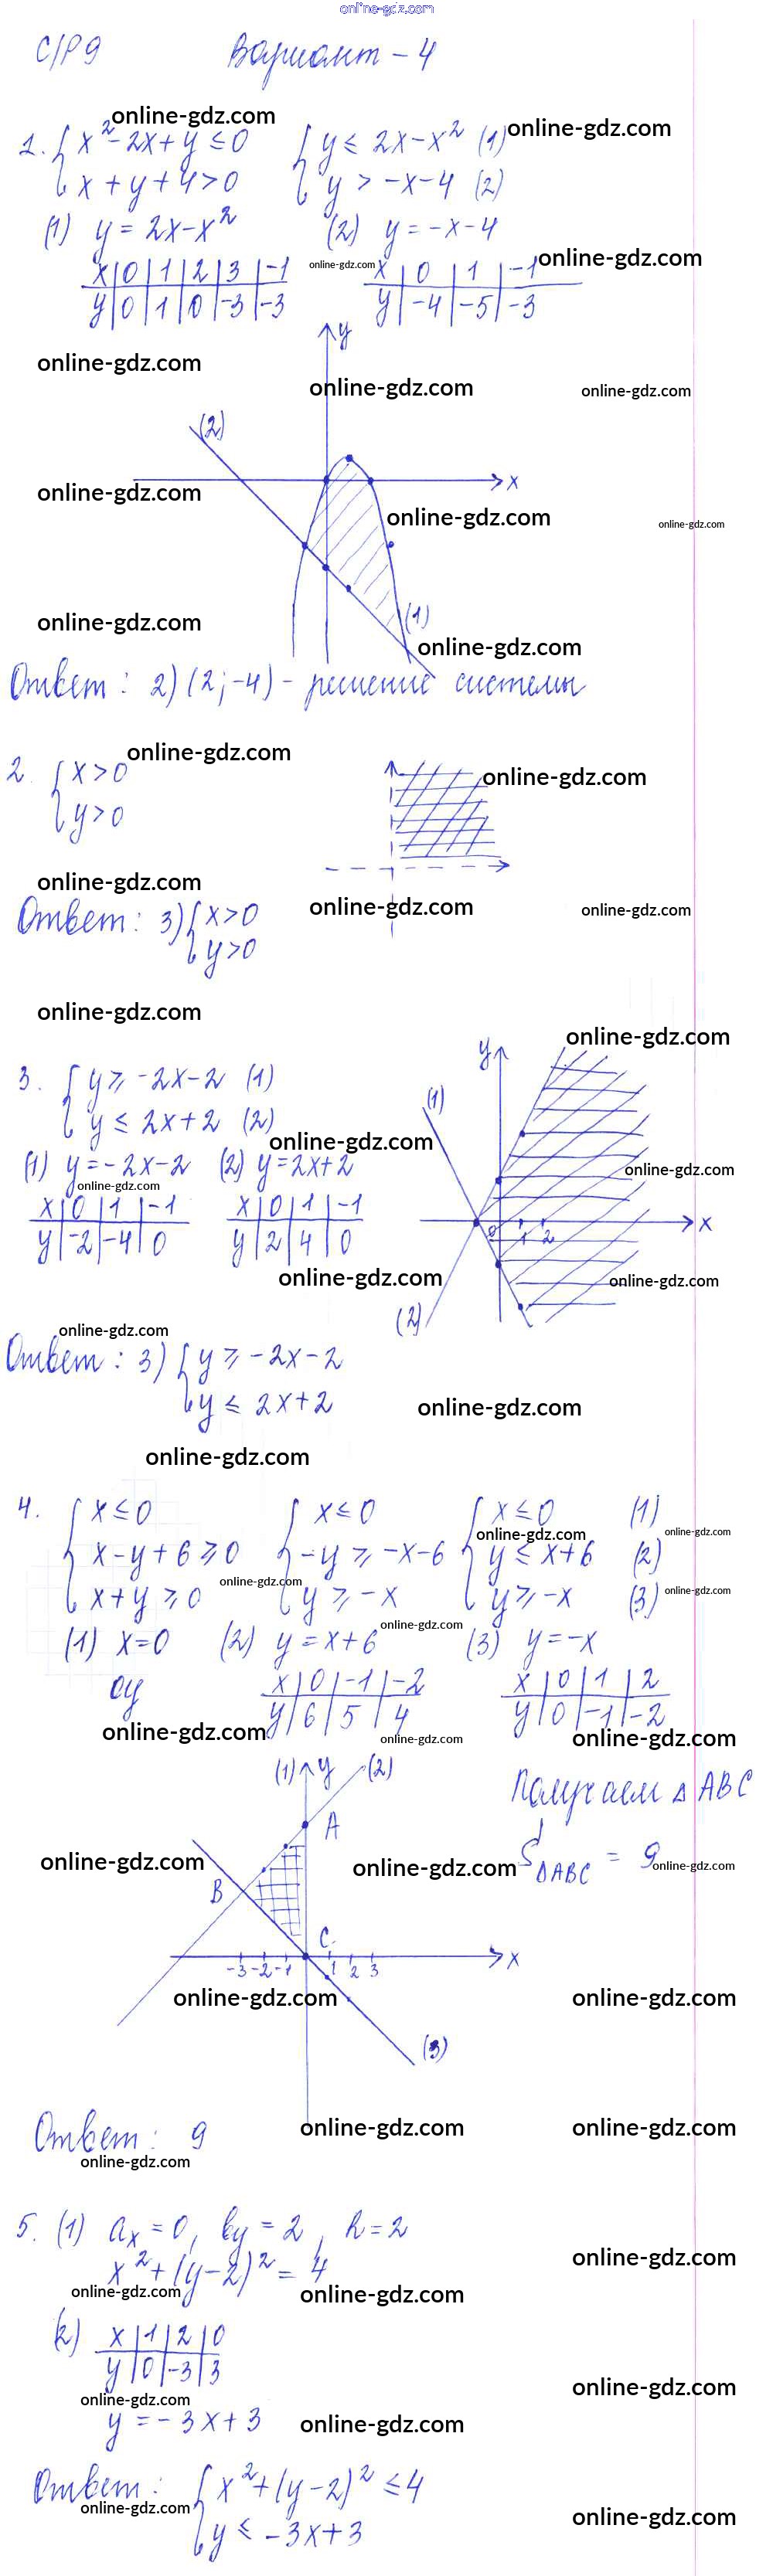 online-gdz.com
С/Р 9 Вариант - 4
online-gdz.com
1. { x² - 2x + y ≤ 0 { y ≤ 2x - x² (1) online-gdz.com
x + y + 4 > 0 y > -x - 4 (2)
(1) y = 2x - x² (2) y = -x - 4
online-gdz.com
x | 0 | 1 | 2 | 3 | -1 online-gdz.com x | 0 | 1 | -1
y | 0 | 1 | 0 | -3 | -3 y | -4 | -5 | -3
y
online-gdz.com
online-gdz.com online-gdz.com
(2)
x
online-gdz.com
online-gdz.com online-gdz.com
online-gdz.com (1)
online-gdz.com
Ответ: 2) (2; -4) - решение системы
online-gdz.com
2. { x > 0 online-gdz.com
y > 0
online-gdz.com
Ответ: 3) { x > 0 online-gdz.com online-gdz.com
y > 0
online-gdz.com
online-gdz.com
y
3. { y ≥ -2x - 2 (1) (1)
y ≤ 2x + 2 (2)
online-gdz.com
(1) y = -2x - 2 (2) y = 2x + 2 online-gdz.com
online-gdz.com
x | 0 | 1 | -1 x | 0 | 1 | -1
y | -2 | -4 | 0 y | 2 | 4 | 0
0 1 2 x
online-gdz.com online-gdz.com
(2)
online-gdz.com
Ответ: 3) { y ≥ -2x - 2
y ≤ 2x + 2 online-gdz.com
online-gdz.com
4. { x ≤ 0 { x ≤ 0 { x ≤ 0 (1)
online-gdz.com online-gdz.com
x - y + 6 ≥ 0 -y ≥ -x - 6 y ≤ x + 6 (2)
online-gdz.com
x + y ≥ 0 y ≥ -x y ≥ -x (3) online-gdz.com
online-gdz.com
(1) x = 0 (2) y = x + 6 (3) y = -x
оу x | 0 | -1 | -2 x | 0 | 1 | 2
y | 6 | 5 | 4 y | 0 | -1 | -2
online-gdz.com online-gdz.com online-gdz.com
(1) y (2) Получаем △ ABC
A
online-gdz.com online-gdz.com S△ABC = 9 online-gdz.com
B
C
-3 -2 -1 1 2 3 x
online-gdz.com online-gdz.com
(3)
Ответ: 9 online-gdz.com online-gdz.com
online-gdz.com
5. (1) aₓ = 0, bᵧ = 2, R = 2
online-gdz.com
x² + (y - 2)² = 4
online-gdz.com online-gdz.com
(2) x | 1 | 2 | 0
y | 0 | -3 | 3
online-gdz.com
online-gdz.com
y = -3x + 3 online-gdz.com
Ответ: { x² + (y - 2)² ≤ 4
online-gdz.com online-gdz.com
y ≤ -3x + 3